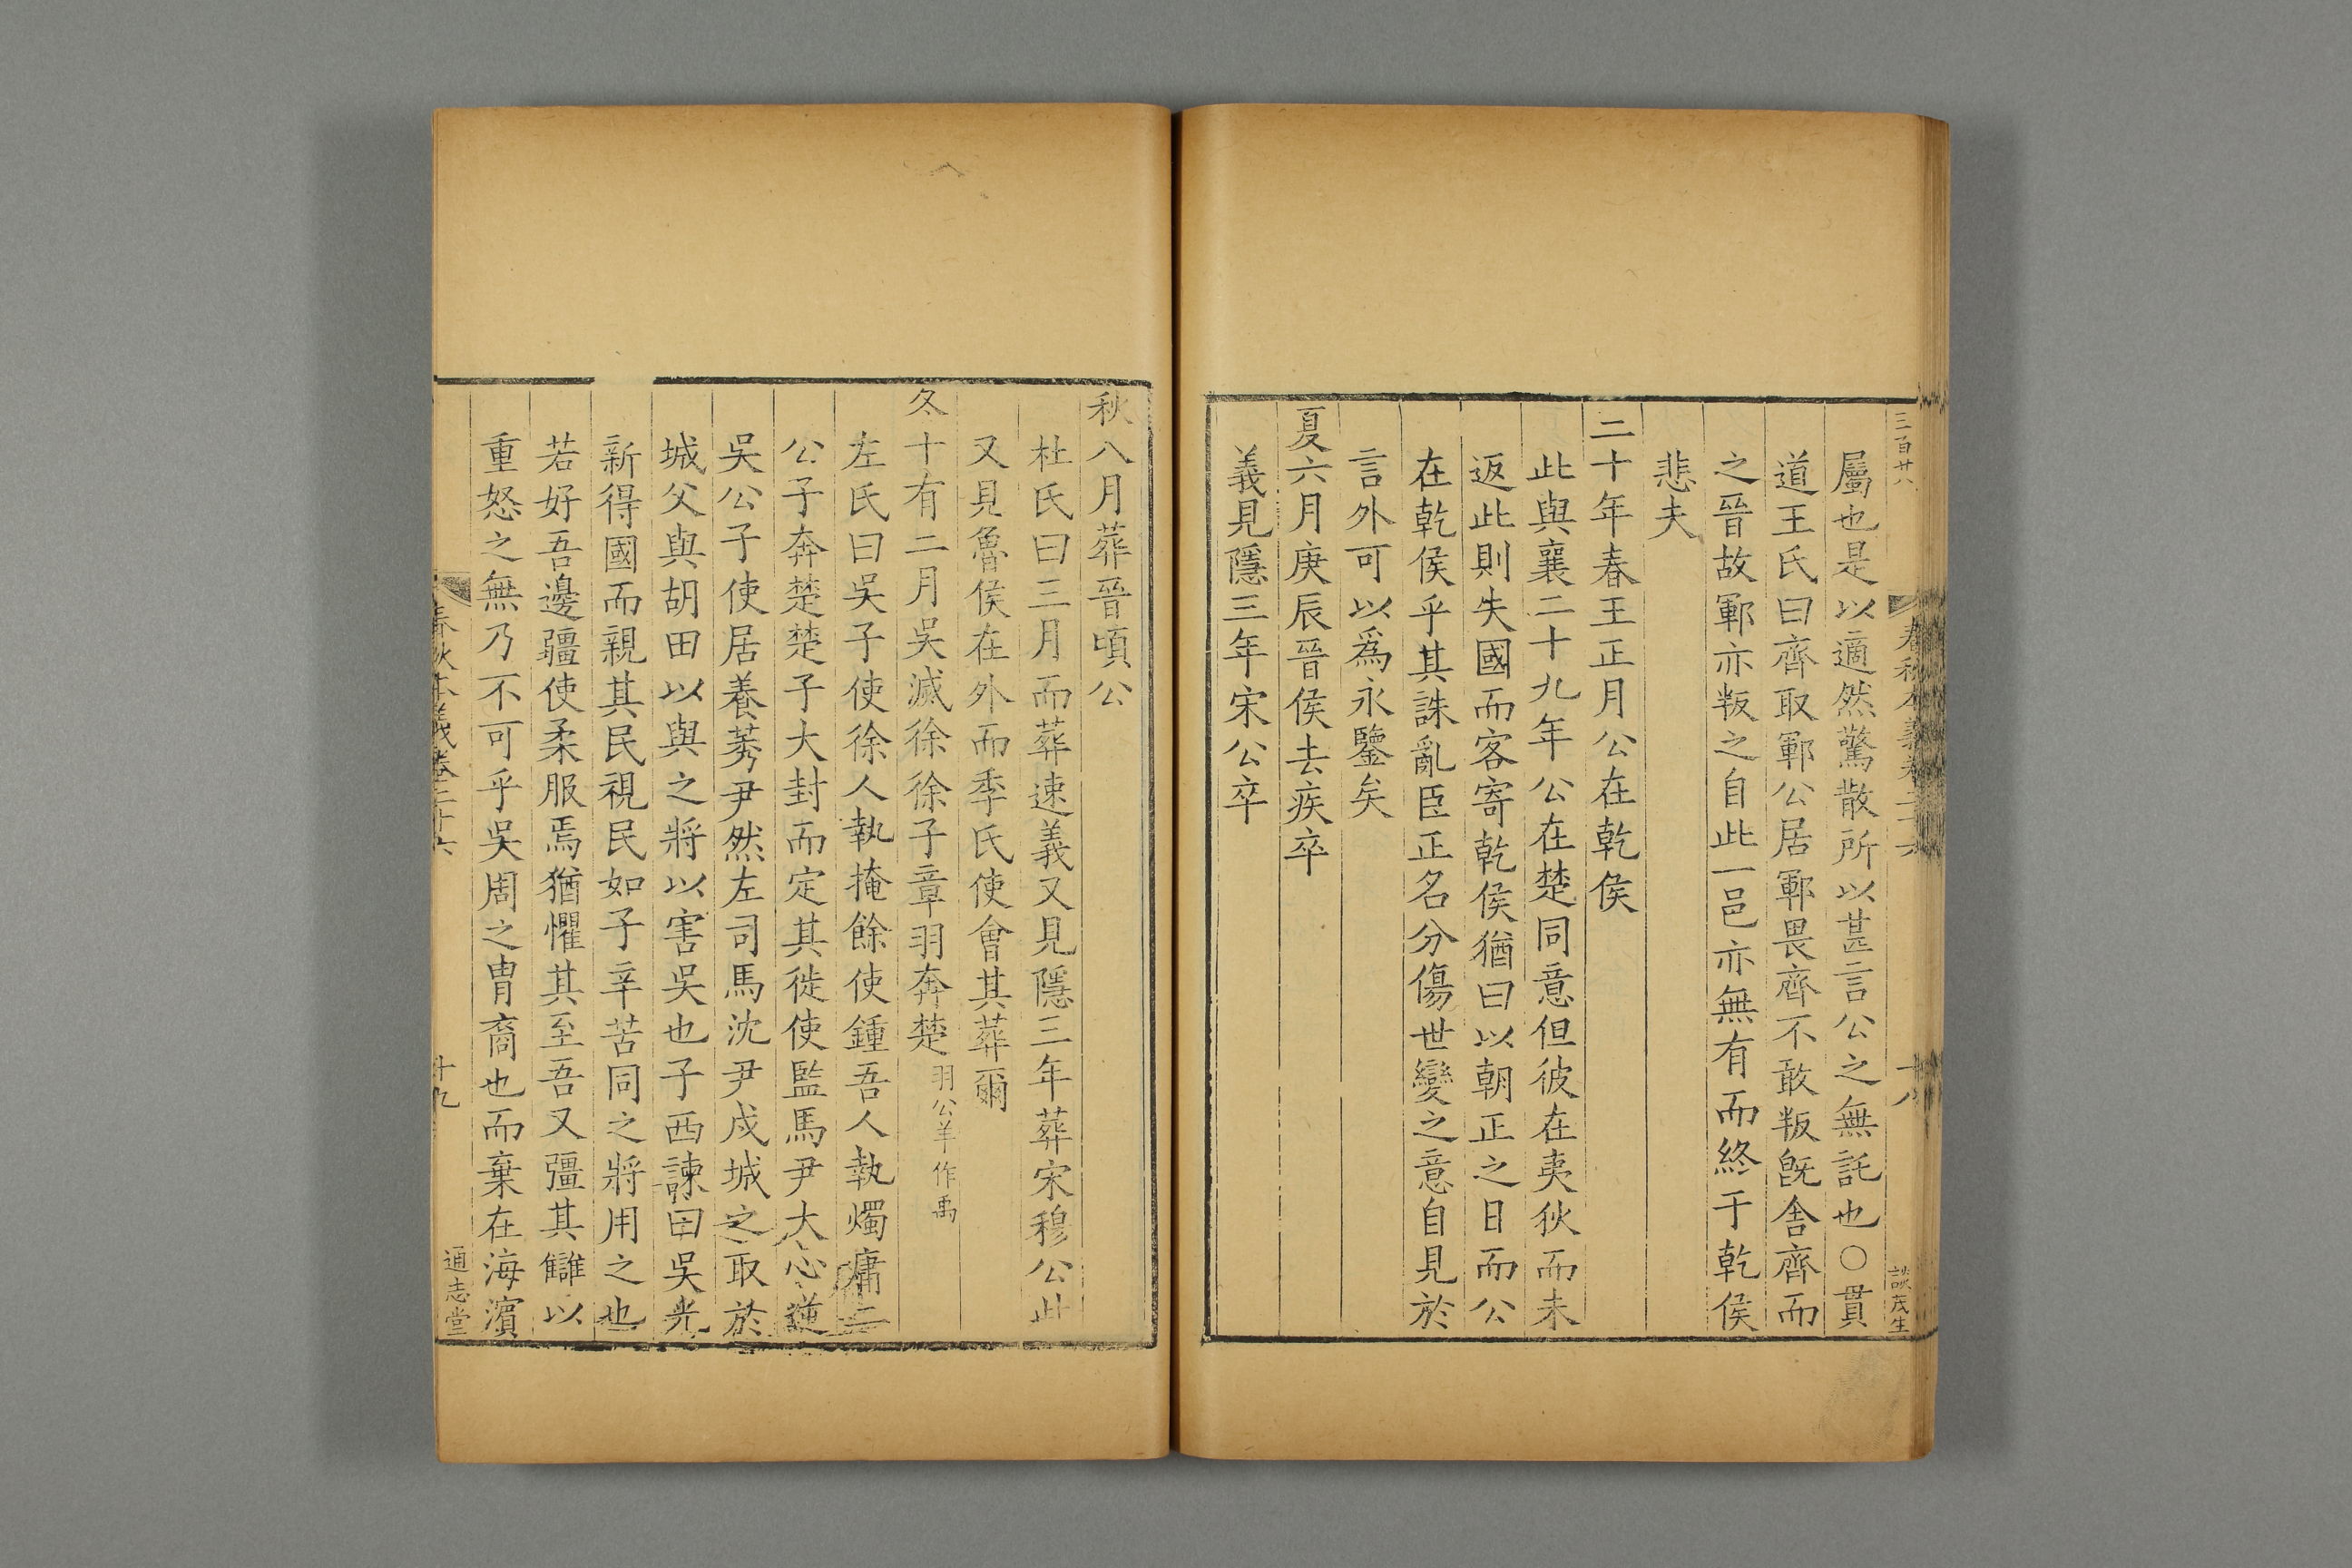 三百廿八
春秋本義卷二十六
十八
談茂生
屬也是以適然驚散所以甚言公之無託也○貫
道王氏曰齊取鄆公居鄆畏齊不敢叛旣舍齊而
之晉故鄆亦叛之自此一邑亦無有而終于乾侯
悲夫
二十年春王正月公在乾侯
此與襄二十九年公在楚同意但彼在夷狄而未
返此則失國而客寄乾侯猶曰以朝正之日而公
在乾侯乎其誅亂臣正名分傷世變之意自見於
言外可以爲永鑒矣
夏六月庚辰晉侯去疾卒
義見隱三年宋公卒
秋八月葬晉頃公
杜氏曰三月而葬速義又見隱三年葬宋穆公此
又見魯侯在外而季氏使會其葬爾
冬十有二月吳滅徐徐子章羽奔楚羽公羊作禹
左氏曰吳子使徐人執掩餘使鍾吾人執燭庸二
公子奔楚楚子大封而定其徙使監馬尹大心逆
吳公子使居養莠尹然左司馬沈尹戌城之取於
城父與胡田以與之將以害吳也子西諫曰吳光
新得國而親其民視民如子辛苦同之將用之也
若好吾邊疆使柔服焉猶懼其至吾又彊其讎以
重怒之無乃不可乎吳周之胄裔也而棄在海濱
春秋本義卷二十六
十九
通志堂